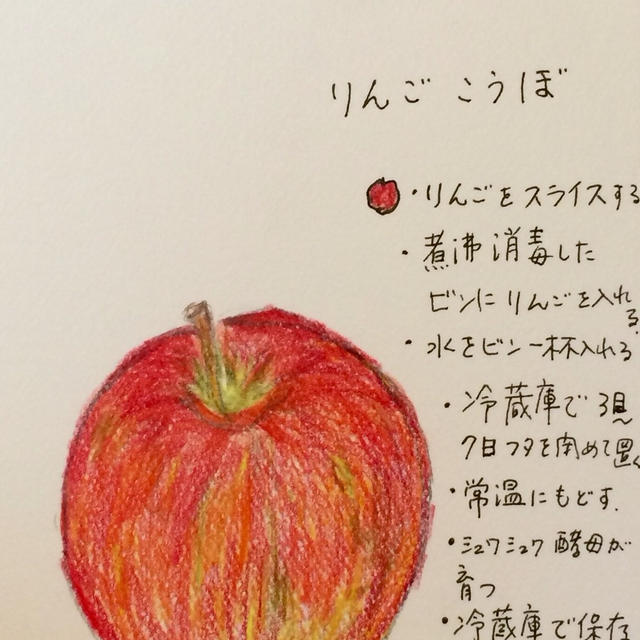 りんご こうぼ
・りんごをスライスする
・煮沸消毒した
ビンにりんごを入れる
・水をビン一杯入れる
・冷蔵庫で3日〜
7日フタを閉めて置く
・常温にもどす.
・シュワシュワ酵母が
育つ
・冷蔵庫で保存